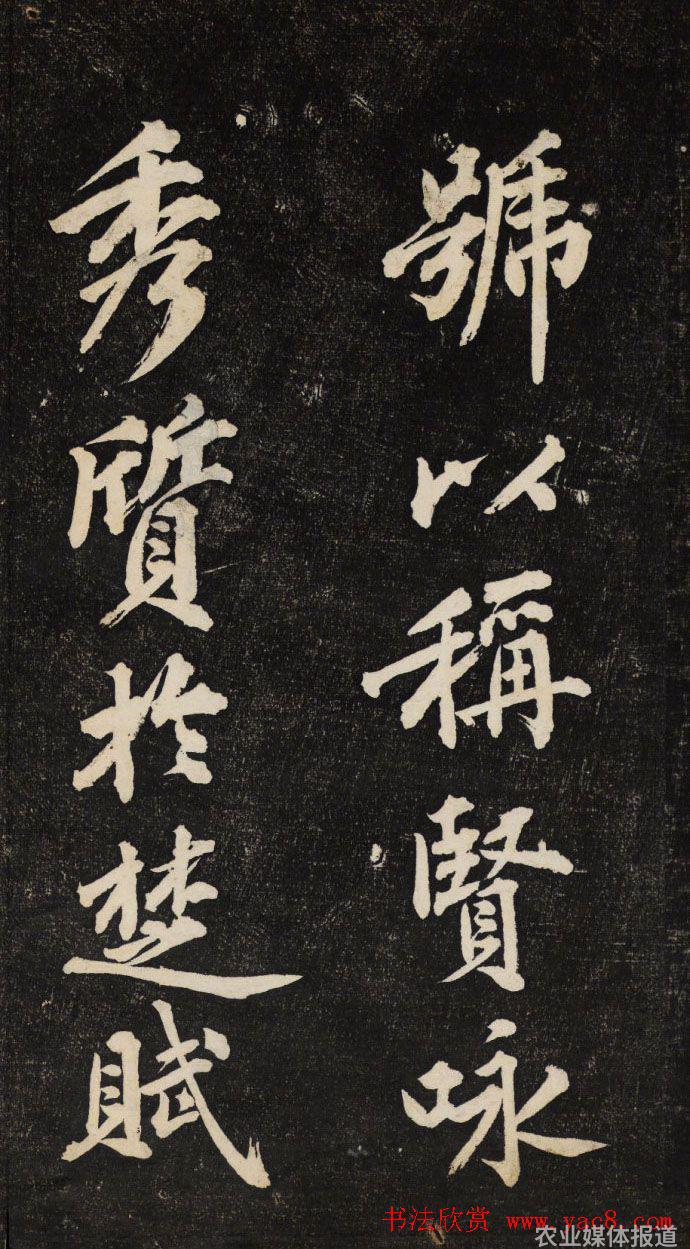 號以稱賢咏
秀質於楚賦
书法欣赏 www.yac8.com
农业媒体报道